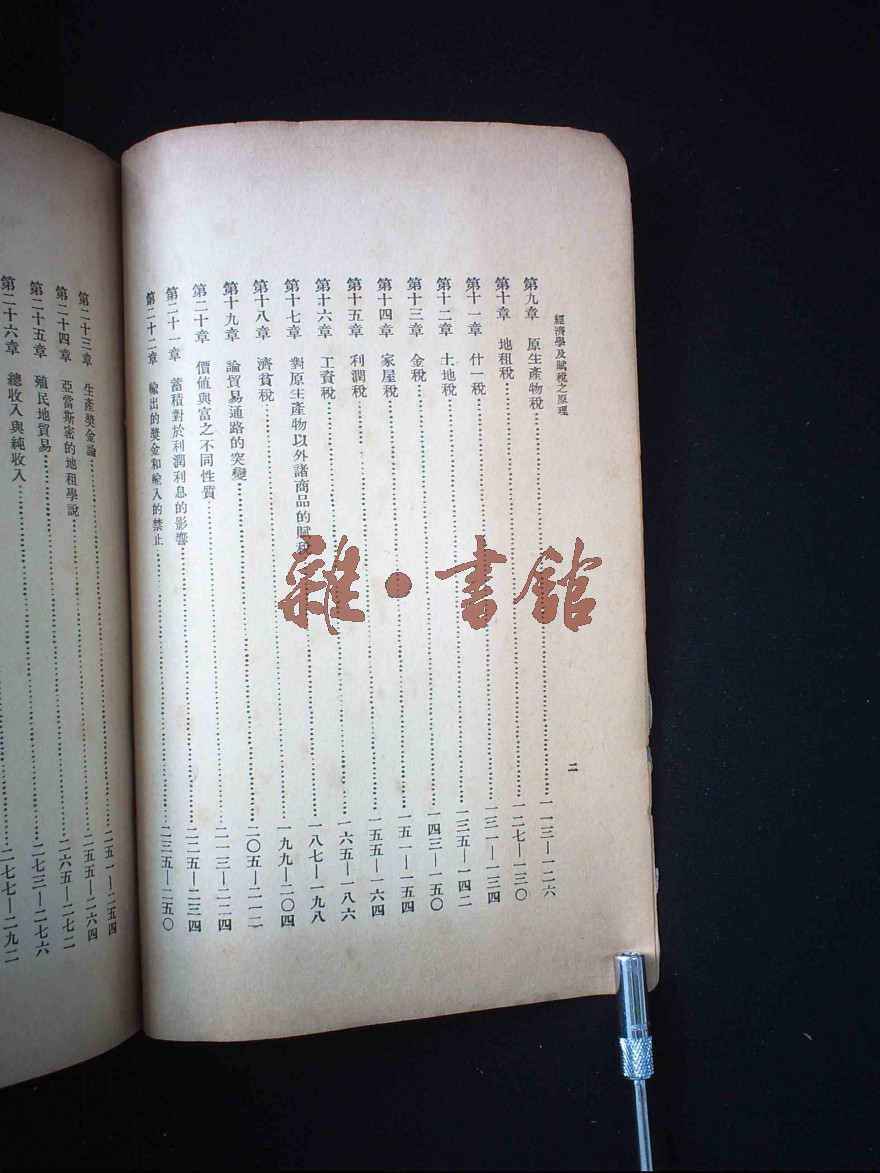 經濟學及賦稅之原理
二
第九章 原生產物稅……一一三—一二六
第十章 地租稅……一二七—一三〇
第十一章 什一稅……一三一—一三四
第十二章 土地稅……一三五—一四二
第十三章 金稅……一四三—一五〇
第十四章 家屋稅……一五一—一五四
第十五章 利潤稅……一五五—一六四
第十六章 工資稅……一六五—一八六
第十七章 對原生產物以外諸商品的賦稅……一八七—一九八
第十八章 濟貧稅……一九九—二〇四
第十九章 論貿易通路的突變……二〇五—二一二
第二十章 價値與富之不同性質……二一三—二二四
第二十一章 蓄積對於利潤利息的影響……二二五—二三四
第二十二章 輸出的獎金和輸入的禁止……二三五—二五〇
第二十三章 生產獎金論……二五一—二五四
第二十四章 亞當斯密的地租學說……二五五—二六四
第二十五章 殖民地貿易……二六五—二七二
第二十六章 總收入與純收入……二七三—二七六
二七七—二九二
雜·書館